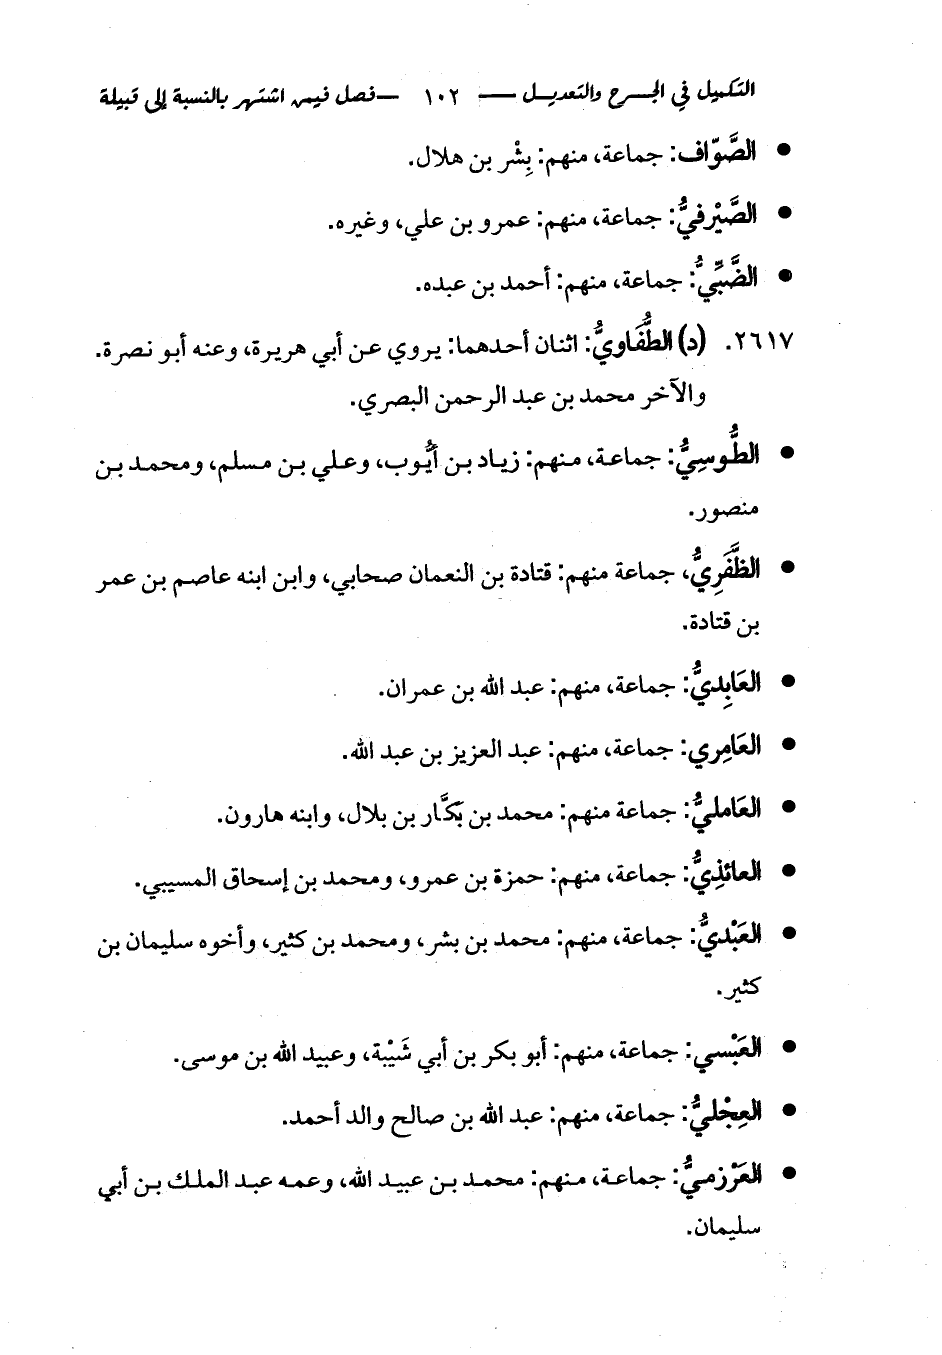 التكميل في الجرح والتعديل — ١٠٢ — فصل فيمن اشتهر بالنسبة إلى قبيلة
● الصَّوّاف: جماعة، منهم: بِشْر بن هلال.
● الصَّيْرفيُّ: جماعة، منهم: عمرو بن علي، وغيره.
● الضَّبِّيُّ: جماعة، منهم: أحمد بن عبده.
٢٦١٧. (د) الطُّفَاويُّ: اثنان أحدهما: يروي عن أبي هريرة، وعنه أبو نصرة.
والآخر محمد بن عبد الرحمن البصري.
● الطُّوسِيُّ: جماعة، منهم: زياد بن أيُّوب، وعلي بن مسلم، ومحمد بن
منصور.
● الظَّفَرِيُّ، جماعة منهم: قتادة بن النعمان صحابي، وابن ابنه عاصم بن عمر
بن قتادة.
● العَابِديُّ: جماعة، منهم: عبد الله بن عمران.
● العَامِري: جماعة، منهم: عبد العزيز بن عبد الله.
● العَامليُّ: جماعة منهم: محمد بن بَكَّار بن بلال، وابنه هارون.
● العائذِيُّ: جماعة، منهم: حمزة بن عمرو، ومحمد بن إسحاق المسيبي.
● العَبْديُّ: جماعة، منهم: محمد بن بشر، ومحمد بن كثير، وأخوه سليمان بن
كثير.
● العَبْسي: جماعة، منهم: أبو بكر بن أبي شَيْبة، وعبيد الله بن موسى.
● العِجْليُّ: جماعة، منهم: عبد الله بن صالح والد أحمد.
● العَرْزميُّ: جماعة، منهم: محمد بن عبيد الله، وعمه عبد الملك بن أبي
سليمان.